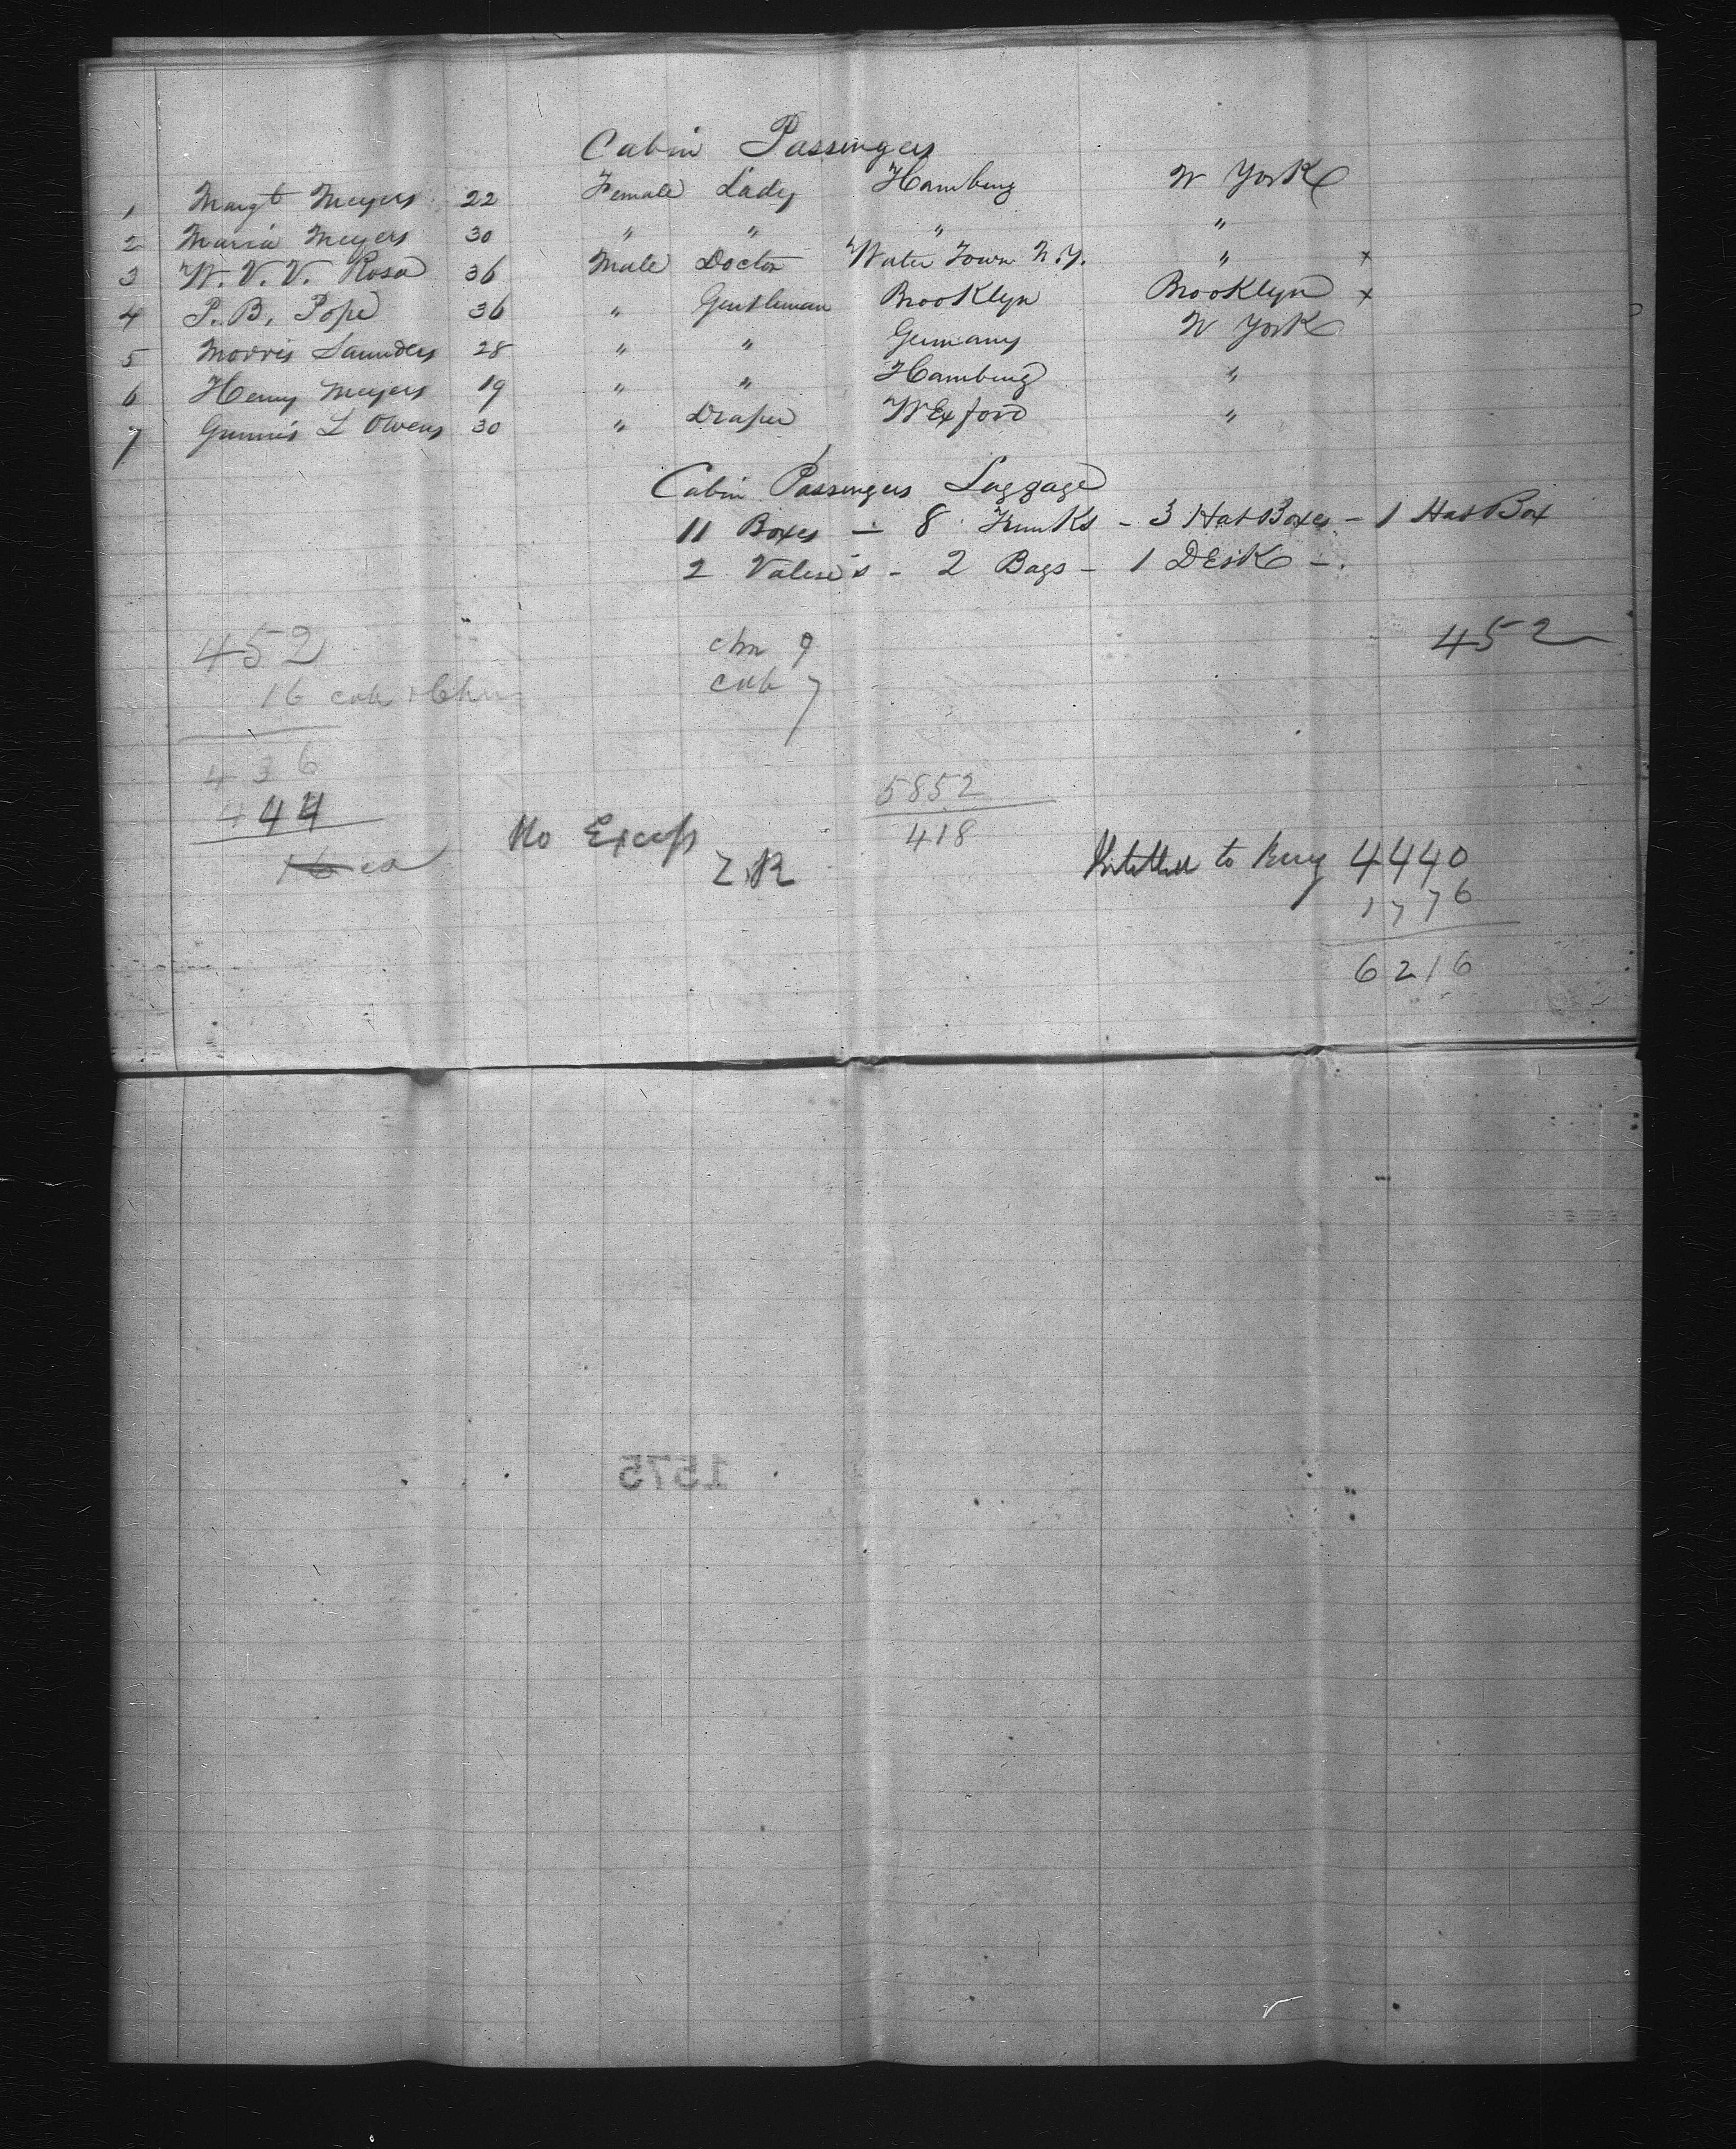 Cabin Passengers
1 Margt Meyers 22 Female Lady Hamburg N York
2 Maria Meyers 30 " " " "
3 W. V. V. Rosa 36 Male Doctor Water Town N.Y. " x
4 P. B. Pope 36 " Gentleman Brooklyn Brooklyn x
5 Morris Saunders 28 " " Germany N York
6 Henry Meyers 19 " " Hamburg "
7 L Owens 30 " Draper WExford "
Cabin Passengers Luggage
11 Boxes - 8 Trunks - 3 Hat Boxes - 1 Hat Box
2 Valises - 2 Bags - 1 DEsk -.
452 chn 9 452
16 cab + Chn cab 7
436
444
5852
418
16 ca
No Excess
Z.R
to 4440
1776
6216
1575